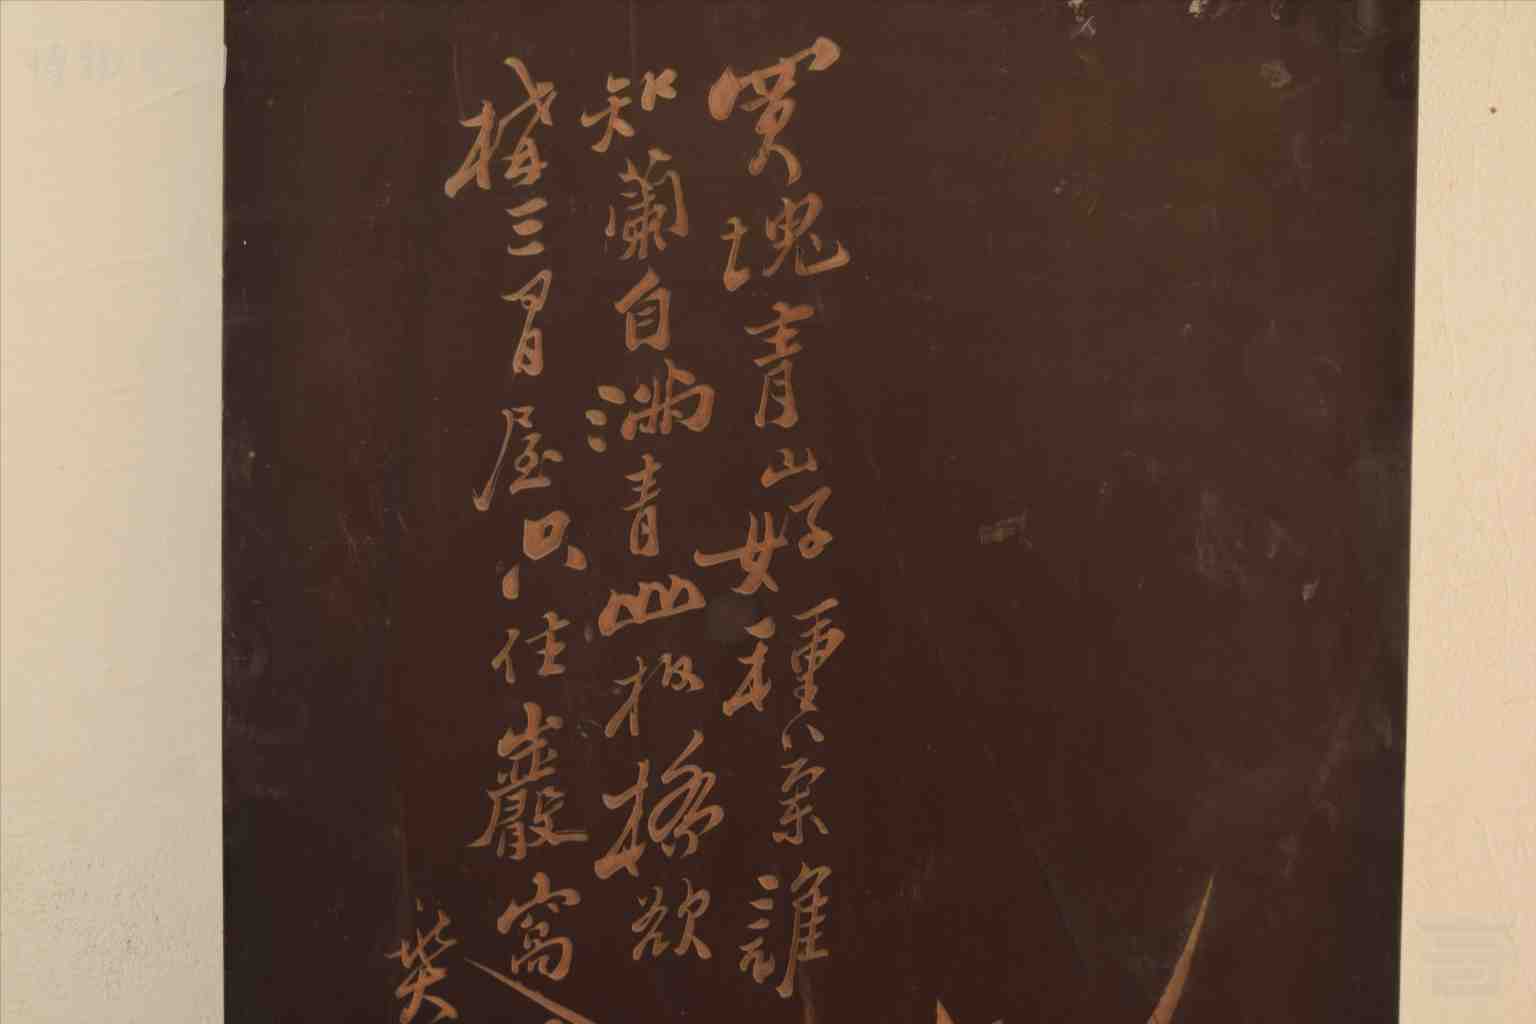 買塊青山好種蘭誰
知蘭自滿青山板橋欲
構三間屋只住巖窩